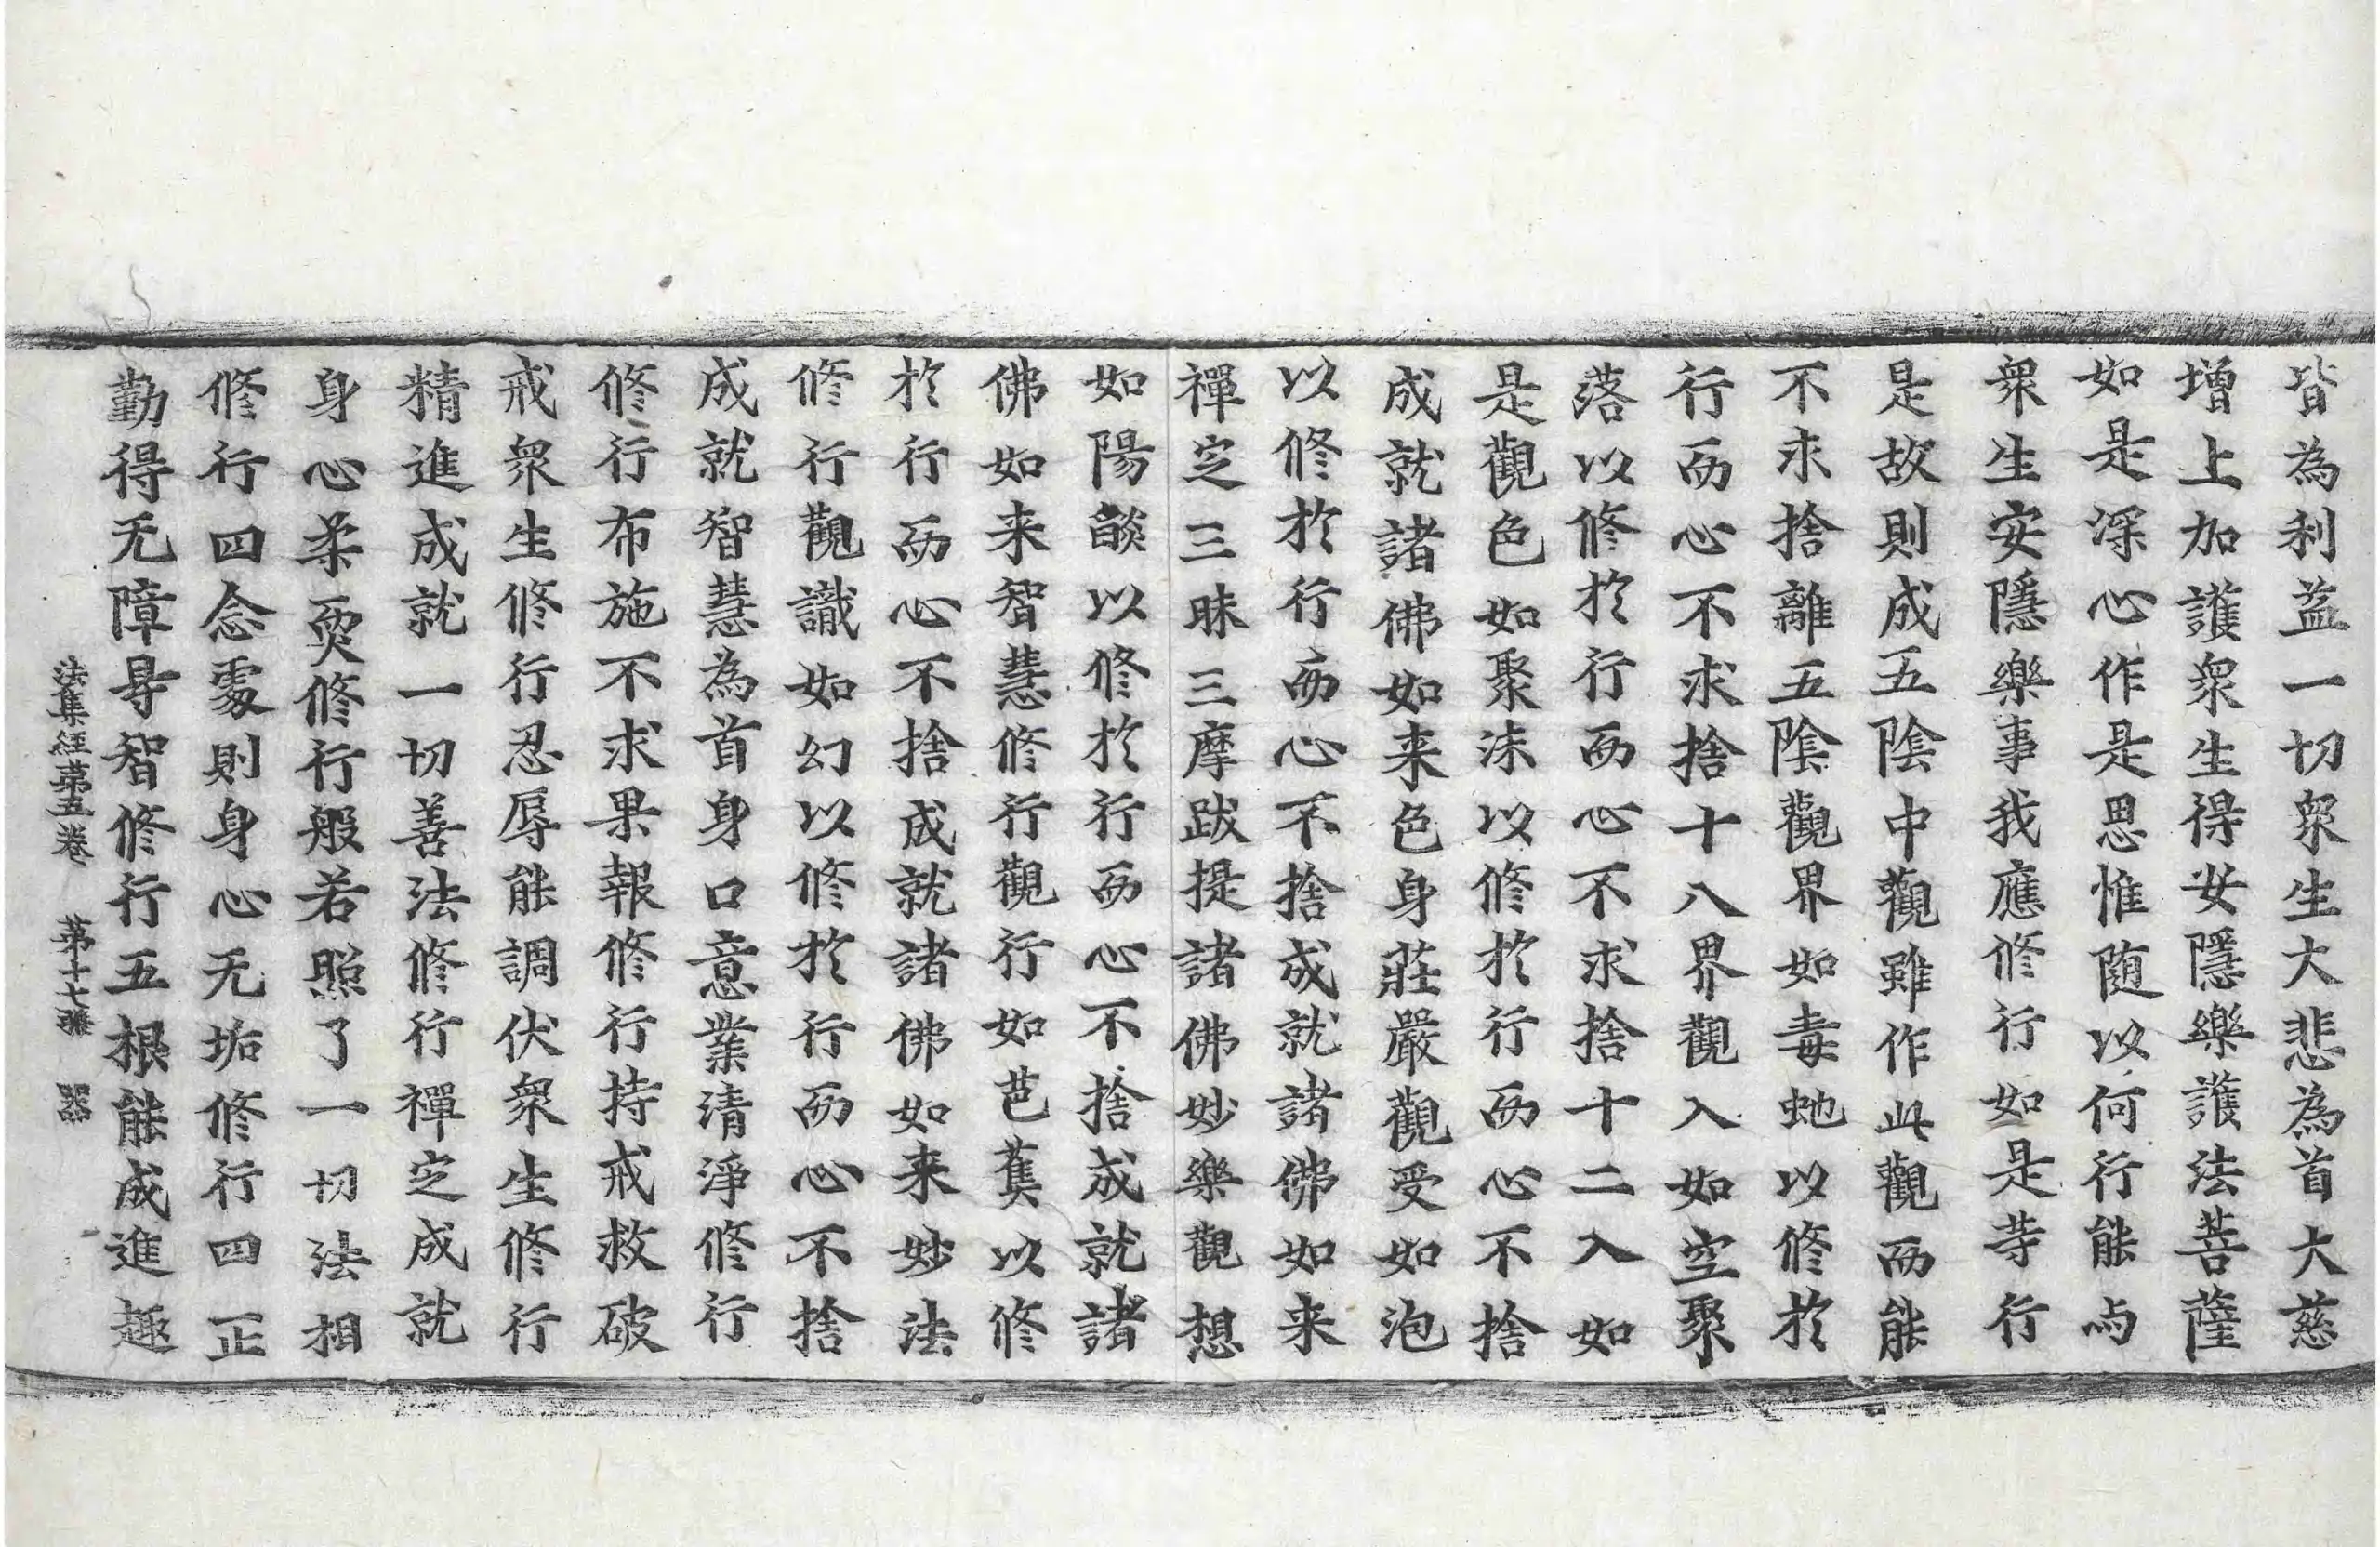 皆為利益一切衆生大悲為首大慈
增上加護衆生得安隱樂護法菩薩
如是深心作是思惟随以何行能与
衆生安隱樂事我應修行如是等行
是故則成五陰中觀雖作此觀而能
不求捨離五陰觀界如毒虵以修於
行而心不求捨十八界觀入如空聚
落以修於行而心不求捨十二入如
是觀色如聚沫以修於行而心不捨
成就諸佛如来色身莊嚴觀受如泡
以修於行而心不捨成就諸佛如来
禪定三昧三摩跋提諸佛妙樂觀想
如陽燄以修於行而心不捨成就諸
佛如来智慧修行觀行如芭蕉以修
於行而心不捨成就諸佛如来妙法
修行觀識如幻以修於行而心不捨
成就智慧為首身口意業清淨修行
修行布施不求果報修行持戒救破
戒衆生修行忍辱能調伏衆生修行
精進成就一切善法修行禪定成就
身心柔耎修行般若照了一切法相
修行四念處則身心无垢修行四正
勤得无障㝵智修行五根能成進趣
法集経苐五卷 苐十七張 器